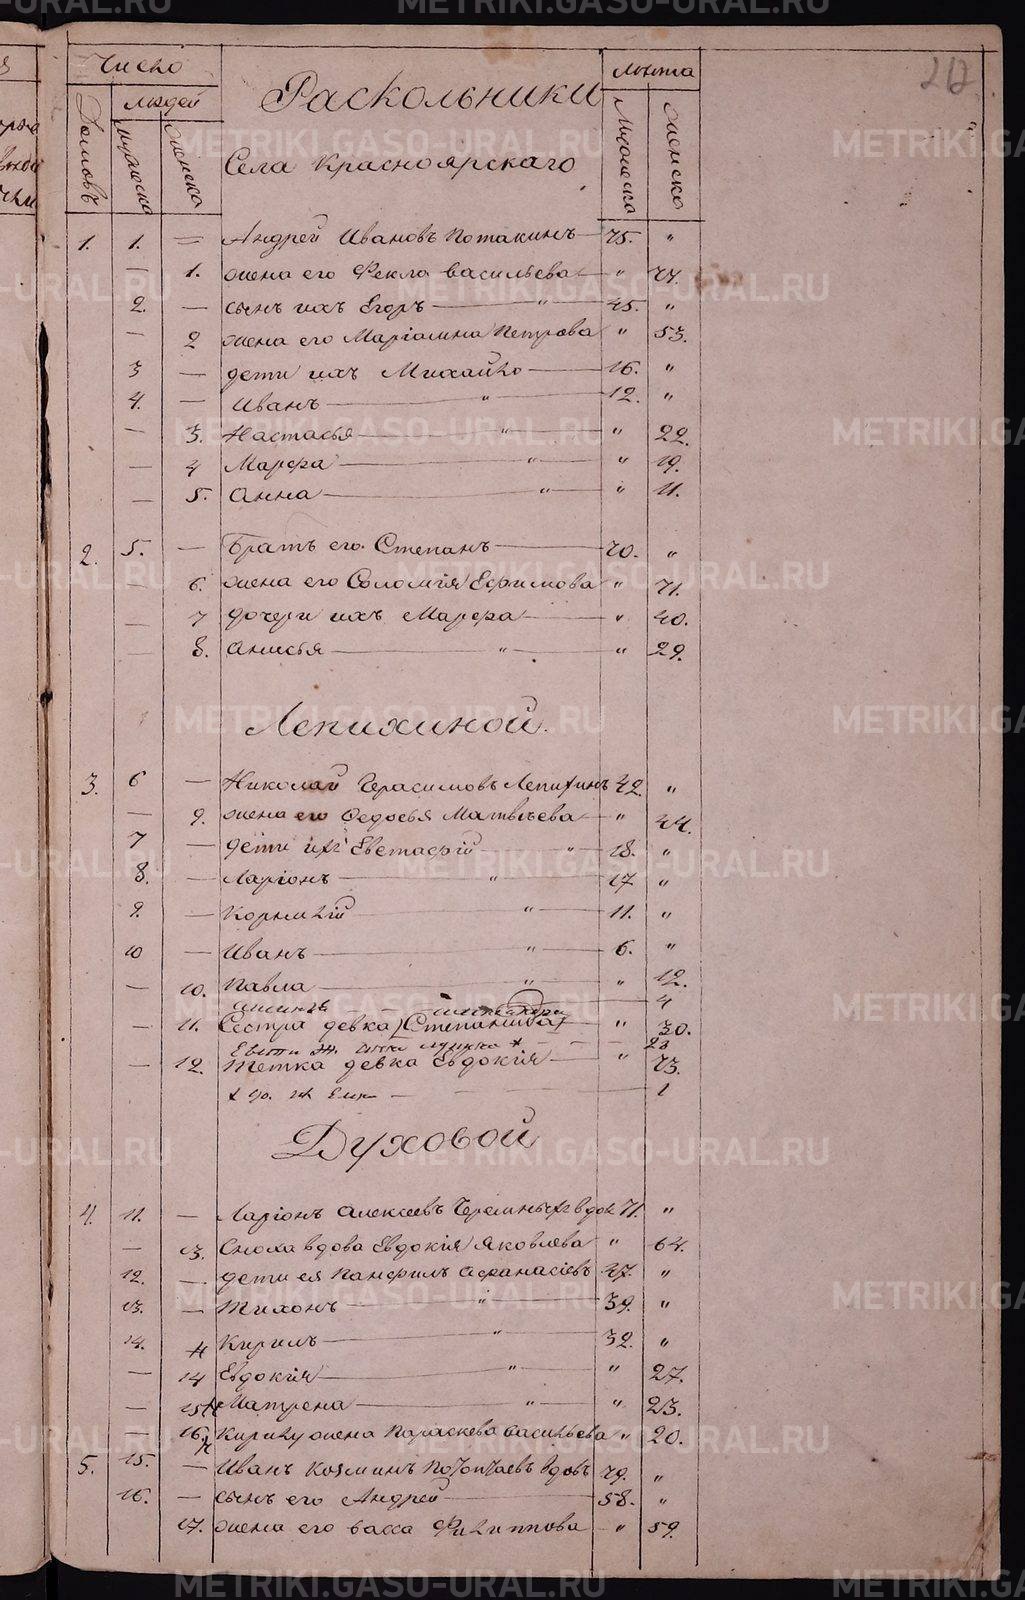 Число
людей
Домовъ
Мужеска
Женска
Раскольники
Села Красноярскаго
лѣта
Мужеска
Женска
1. 1. — Андрей Ивановъ Потакинъ — 75. "
— 1. жена его Фекла Васильева — " 77.
2. — сынъ ихъ Егоръ — " — 45. "
— 2 жена его Маріамна Петрова " 53.
3 — дети ихъ Михайло — 16. "
4. — Иванъ — " — 12. "
— 3. Настасья — " — " 22.
— 4 Марфа — " — " 19.
— 5. Анна — " — " 11.
2. 5. — Братъ его Степанъ — 70. "
— 6. жена его Соломія Ефимова " 71.
— 7 дочери ихъ Марфа — " 40.
— 8. Анисья — " — " 29.
Лепихиной.
3. 6 — Николай Герасимовъ Лепихинъ 42. "
— 9. жена его Федосья Матвѣева — " 44.
7 — дети ихъ Евстафій — " — 18. "
8. — Ларіонъ — " — 17 "
9. — Корнилій — " — 11. "
10 — Иванъ — " — 6. "
— 10. Павла — " — " 12.
4
— 11. Сестра девка Степанида — " 30.
23
— 12. тетка девка Евдокія — " 73.
1
Духовой
4. 11. — Ларіонъ Алексеевъ вдов 71. "
— 13. Сноха вдова Евдокія Яковлева — " 64.
12. — дети ея Панфилъ Афанасіевъ 47. "
13. — Тихонъ — " — 39. "
14. Кирилъ — " — 32. "
— 14 Евдокія — " — " 27.
— 15 Матрена — " — " 23.
— 16. Кирилу жена Параскева Васильева " 20.
5. 15. — Иванъ Козминъ вдовъ 79. "
16. — сынъ его Андрей — 58. "
17. жена его Васса Филиппова — " 59.
METRIKI.GASO-URAL.RU